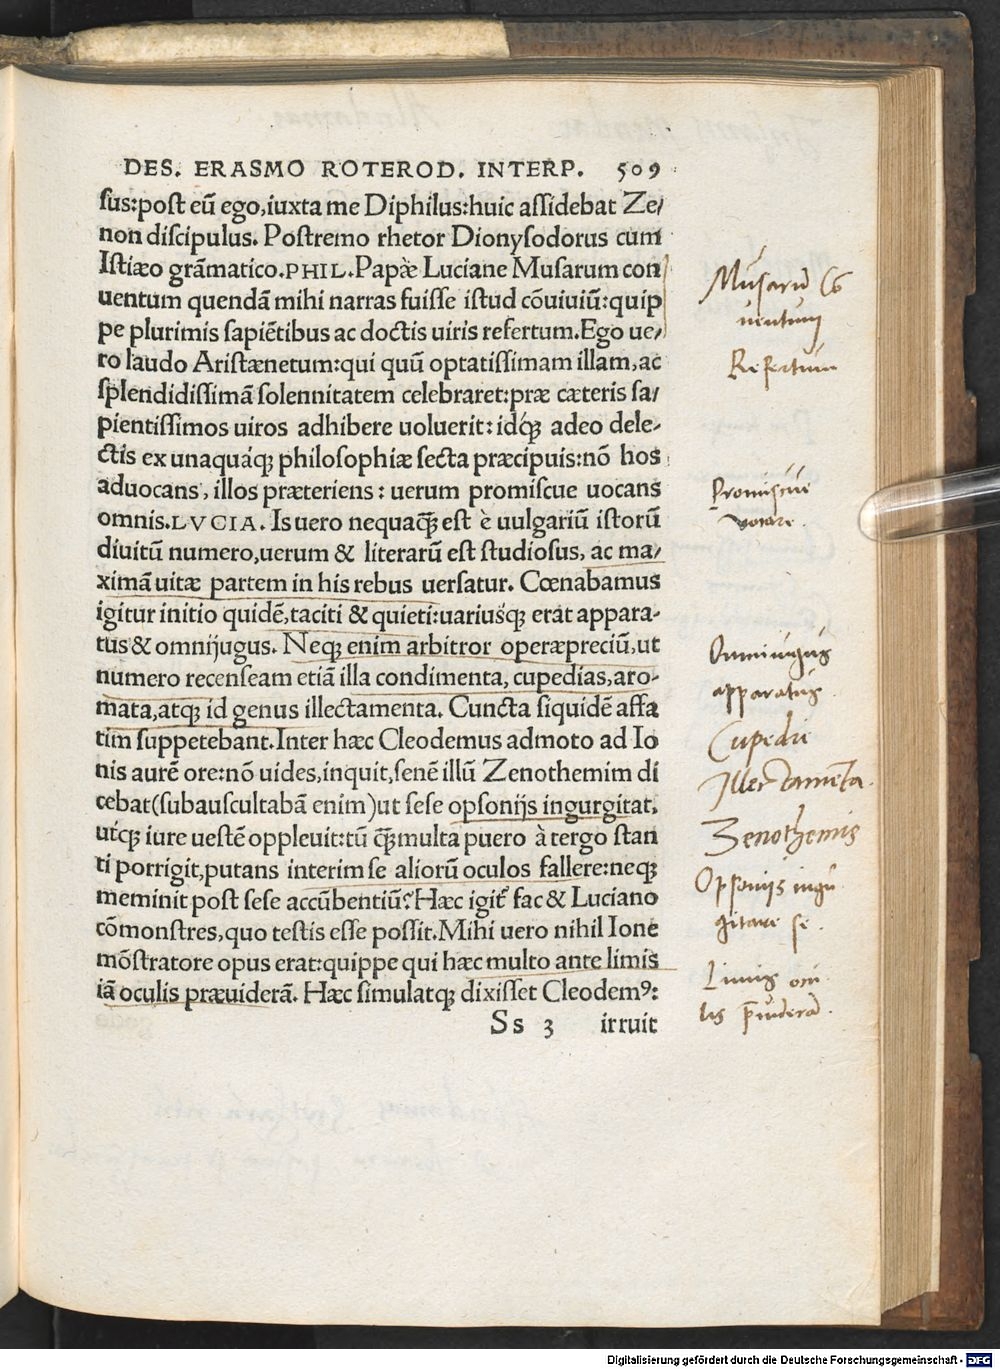 DES. ERASMO ROTEROD. INTERP. 509
sus:post eũ ego,iuxta me Diphilus:huic assidebat Ze/
non discipulus. Postremo rhetor Dionysodorus cum
Istiæo grãmatico.PHIL.Papæ Luciane Musarum con
uentum quendã mihi narras fuisse istud cõuiuiũ:quip
pe plurimis sapiẽtibus ac doctis uiris refertum.Ego ue/
ro laudo Aristænetum:qui quũ optatissimam illam,ac
splendidissimã solennitatem celebraret:præ cæteris sa/
pientissimos uiros adhibere uoluerit:idq́ꝫ adeo dele/
ctis ex unaquáqꝫ philosophiæ secta præcipuis:nõ hos
aduocans, illos præteriens: uerum promiscue uocans
omnis.LVCIA. Is uero nequaq̃ꝫ est è uulgariũ istorũ
diuitũ numero,uerum & literarũ est studiosus, ac ma/
ximã uitæ partem in his rebus uersatur. Cœnabamus
igitur initio quidẽ,taciti & quieti:uariusq́ꝫ erat appara-
tus & omnijugus. Neqꝫ enim arbitror operæpreciũ,ut
numero recenseam etiã illa condimenta, cupedias,aro-
mata,atqꝫ id genus illectamenta. Cuncta siquidẽ affa
tim suppetebant.Inter hæc Cleodemus admoto ad Io
nis aurẽ ore:nõ uides,inquit,senẽ illũ Zenothemim di
cebat(subauscultabã enim)ut sese opsonijs ingurgitat,
utq́ꝫ iure uestẽ oppleuit:tũ q̃ꝫ multa puero à tergo stan
ti porrigit,putans interim se aliorũ oculos fallere:neqꝫ
meminit post sese accũbentiũ?Hæc igit̃ fac & Luciano
cõmonstres,quo testis esse possit.Mihi uero nihil Ione
mõstratore opus erat:quippe qui hæc multo ante limis
iã oculis præuiderã. Hæc simulatqꝫ dixisset Cleodemꝰ:
Ss 3 irruit
Musarũ Cõ
uentum
Refertum
Promiscue
vocare.
Omniiugus
apparatus.
Cupediæ
Illectamenta.
Zenothemis
Opsoniis ingu
gitare se.
Limis ocu
lis p̃uiderã.
Digitalisierung gefördert durch die Deutsche Forschungsgemeinschaft - DFG